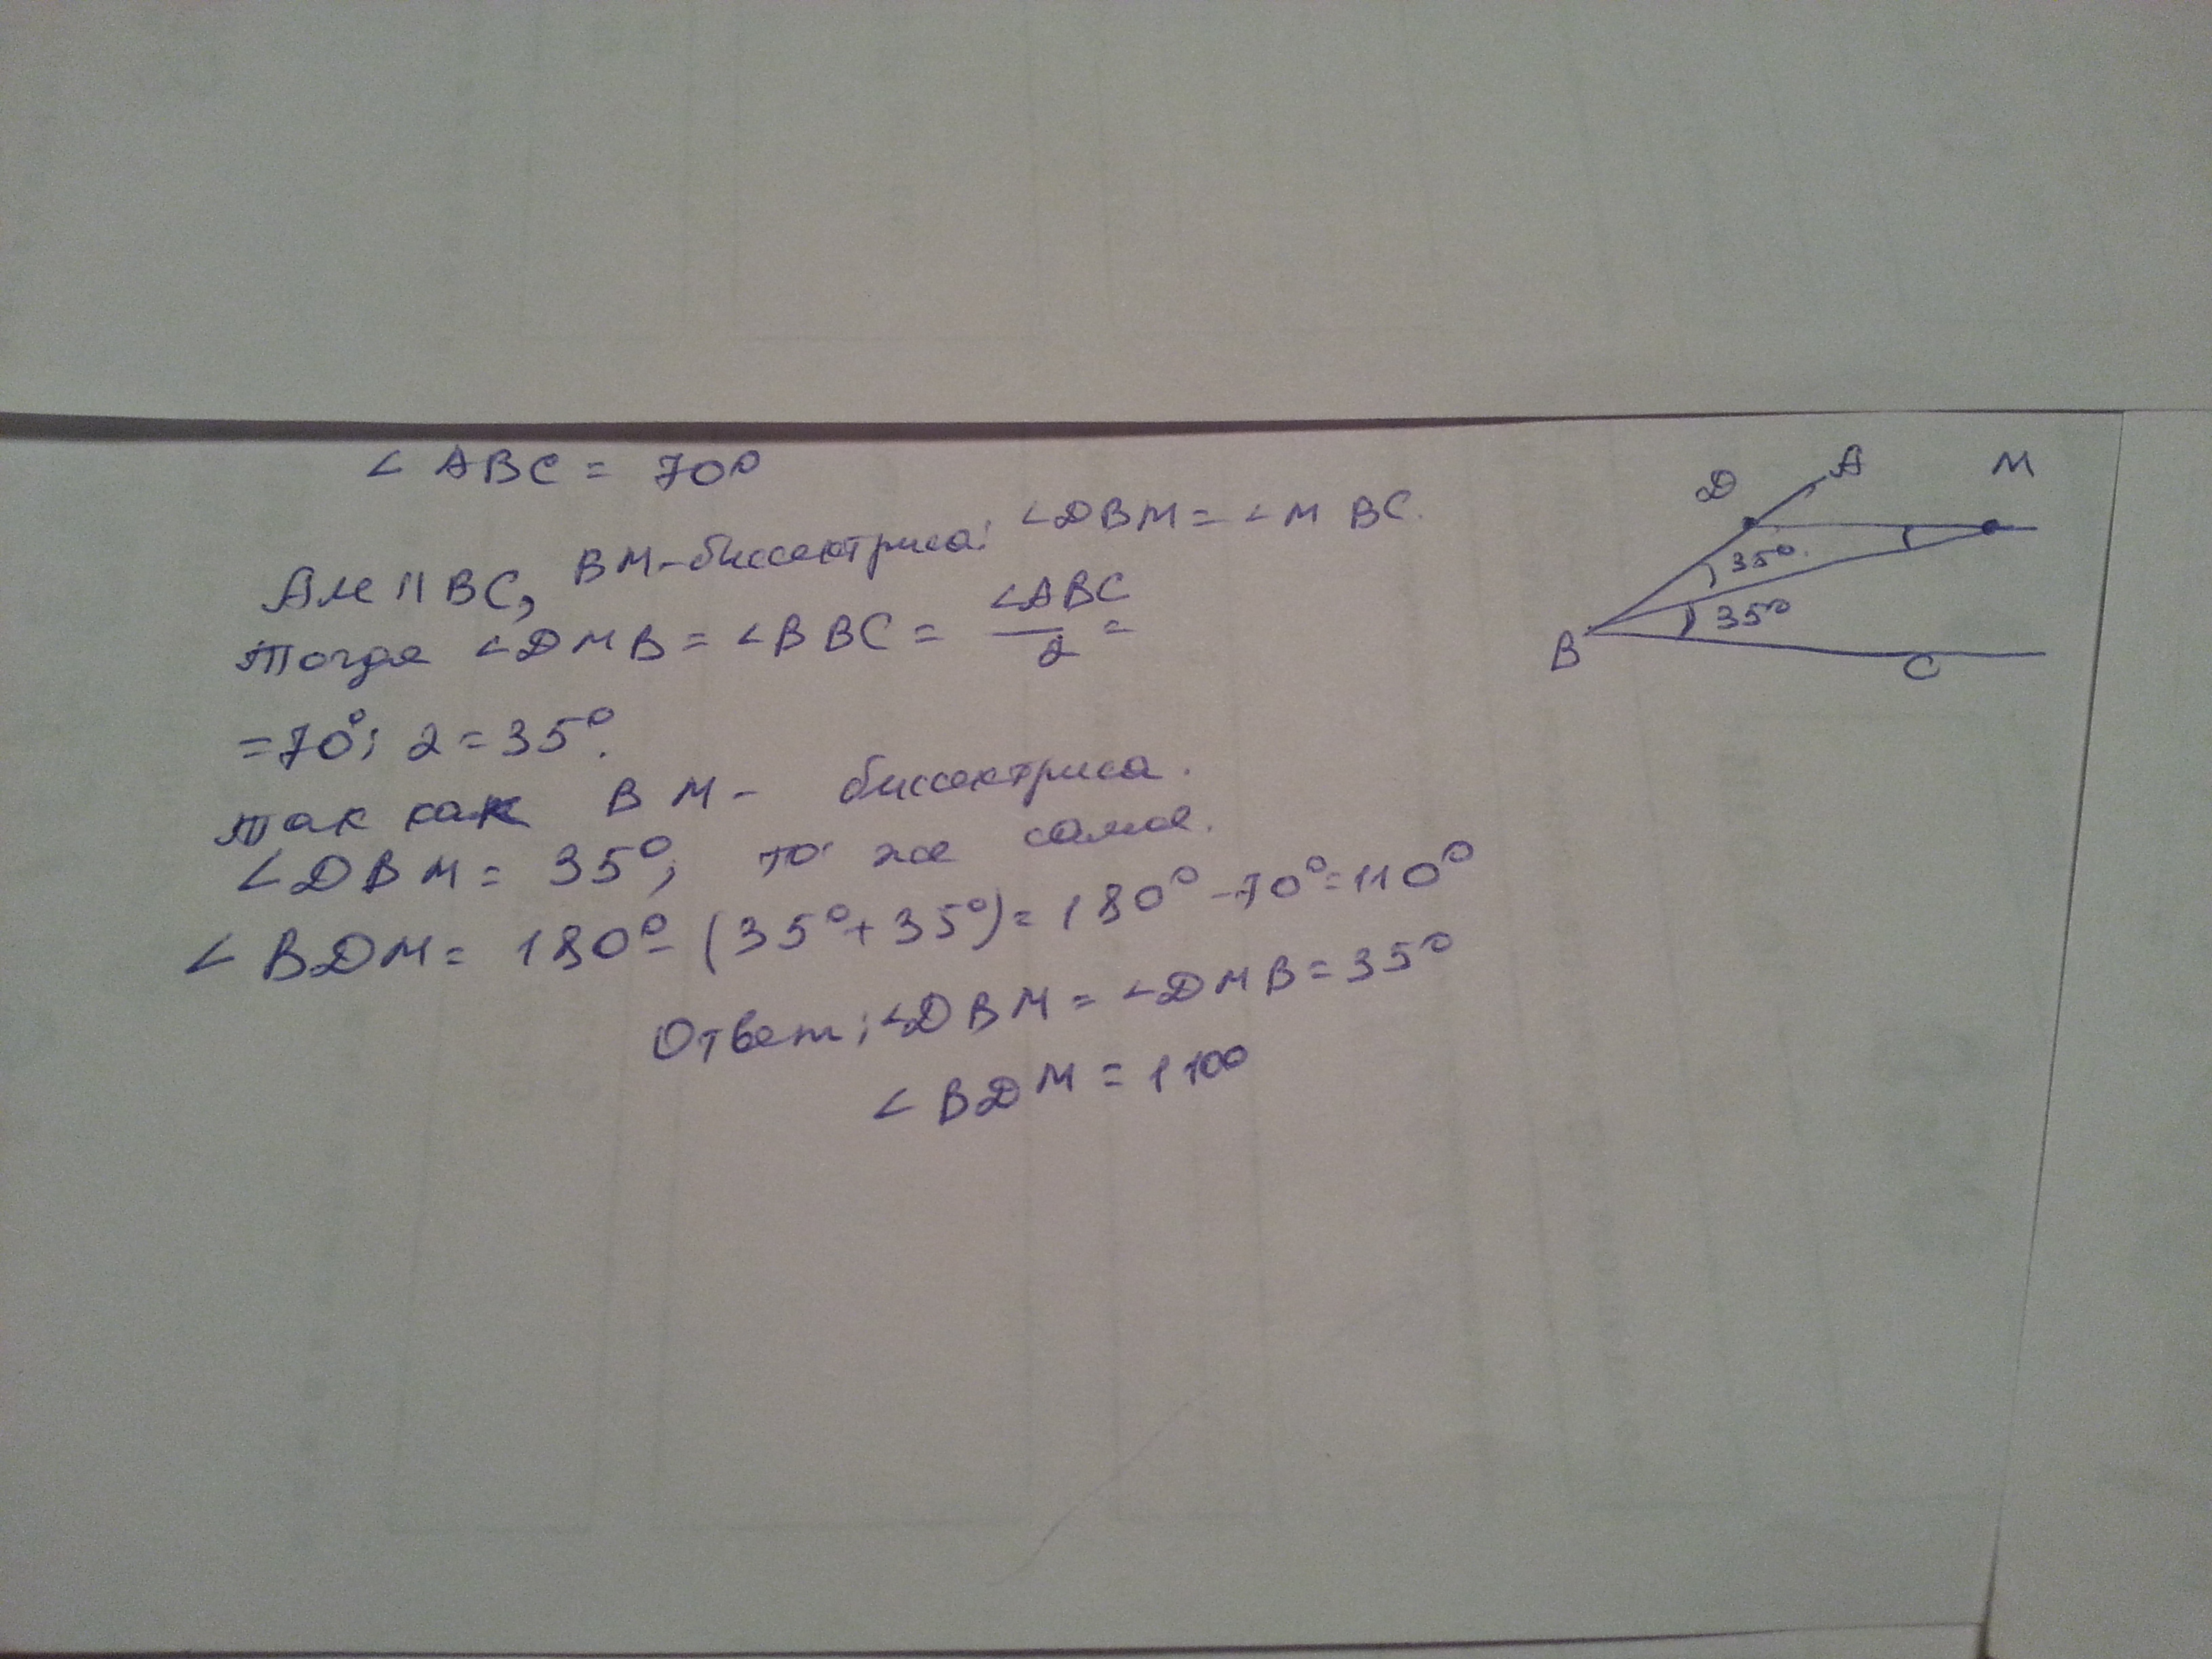 ∠ABC = 70°
∠DBM = ∠MBC.
АМ II BC, BM-биссектриса:
Тогда ∠DMB = ∠BBC = ∠ABC / 2 =
= 70°: 2 = 35°.
Так как BM - биссектриса.
∠DBM = 35°, то же самое.
∠BDM = 180° - (35° + 35°) = 180° - 70° = 110°
Ответ: ∠DBM = ∠DMB = 35°
∠BDM = 110°
D A M
35°
35°
B C